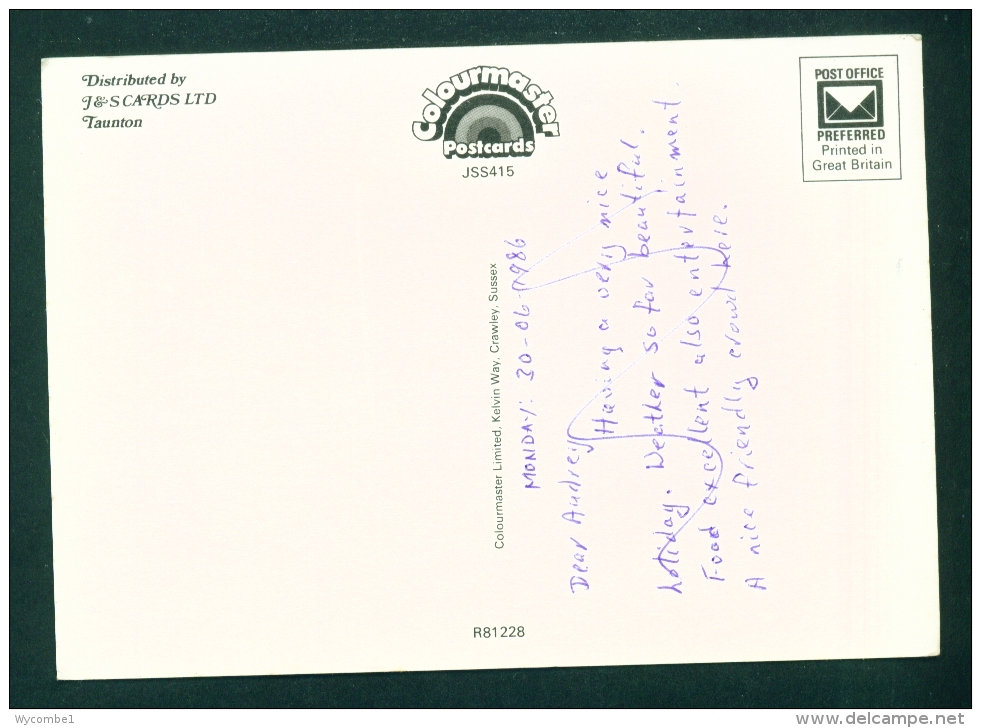 Distributed by
J&S CARDS LTD
Taunton
Colourmaster
Postcards
JSS415
POST OFFICE
PREFERRED
Printed in
Great Britain
Colourmaster Limited, Kelvin Way, Crawley, Sussex
MONDAY: 30-06-1986
Dear Audrey
Having a very nice
holiday. Weather so far beautiful.
Food excellent also entertainment.
A nice friendly crowd here.
R81228
Wycombe1
delcampe.net